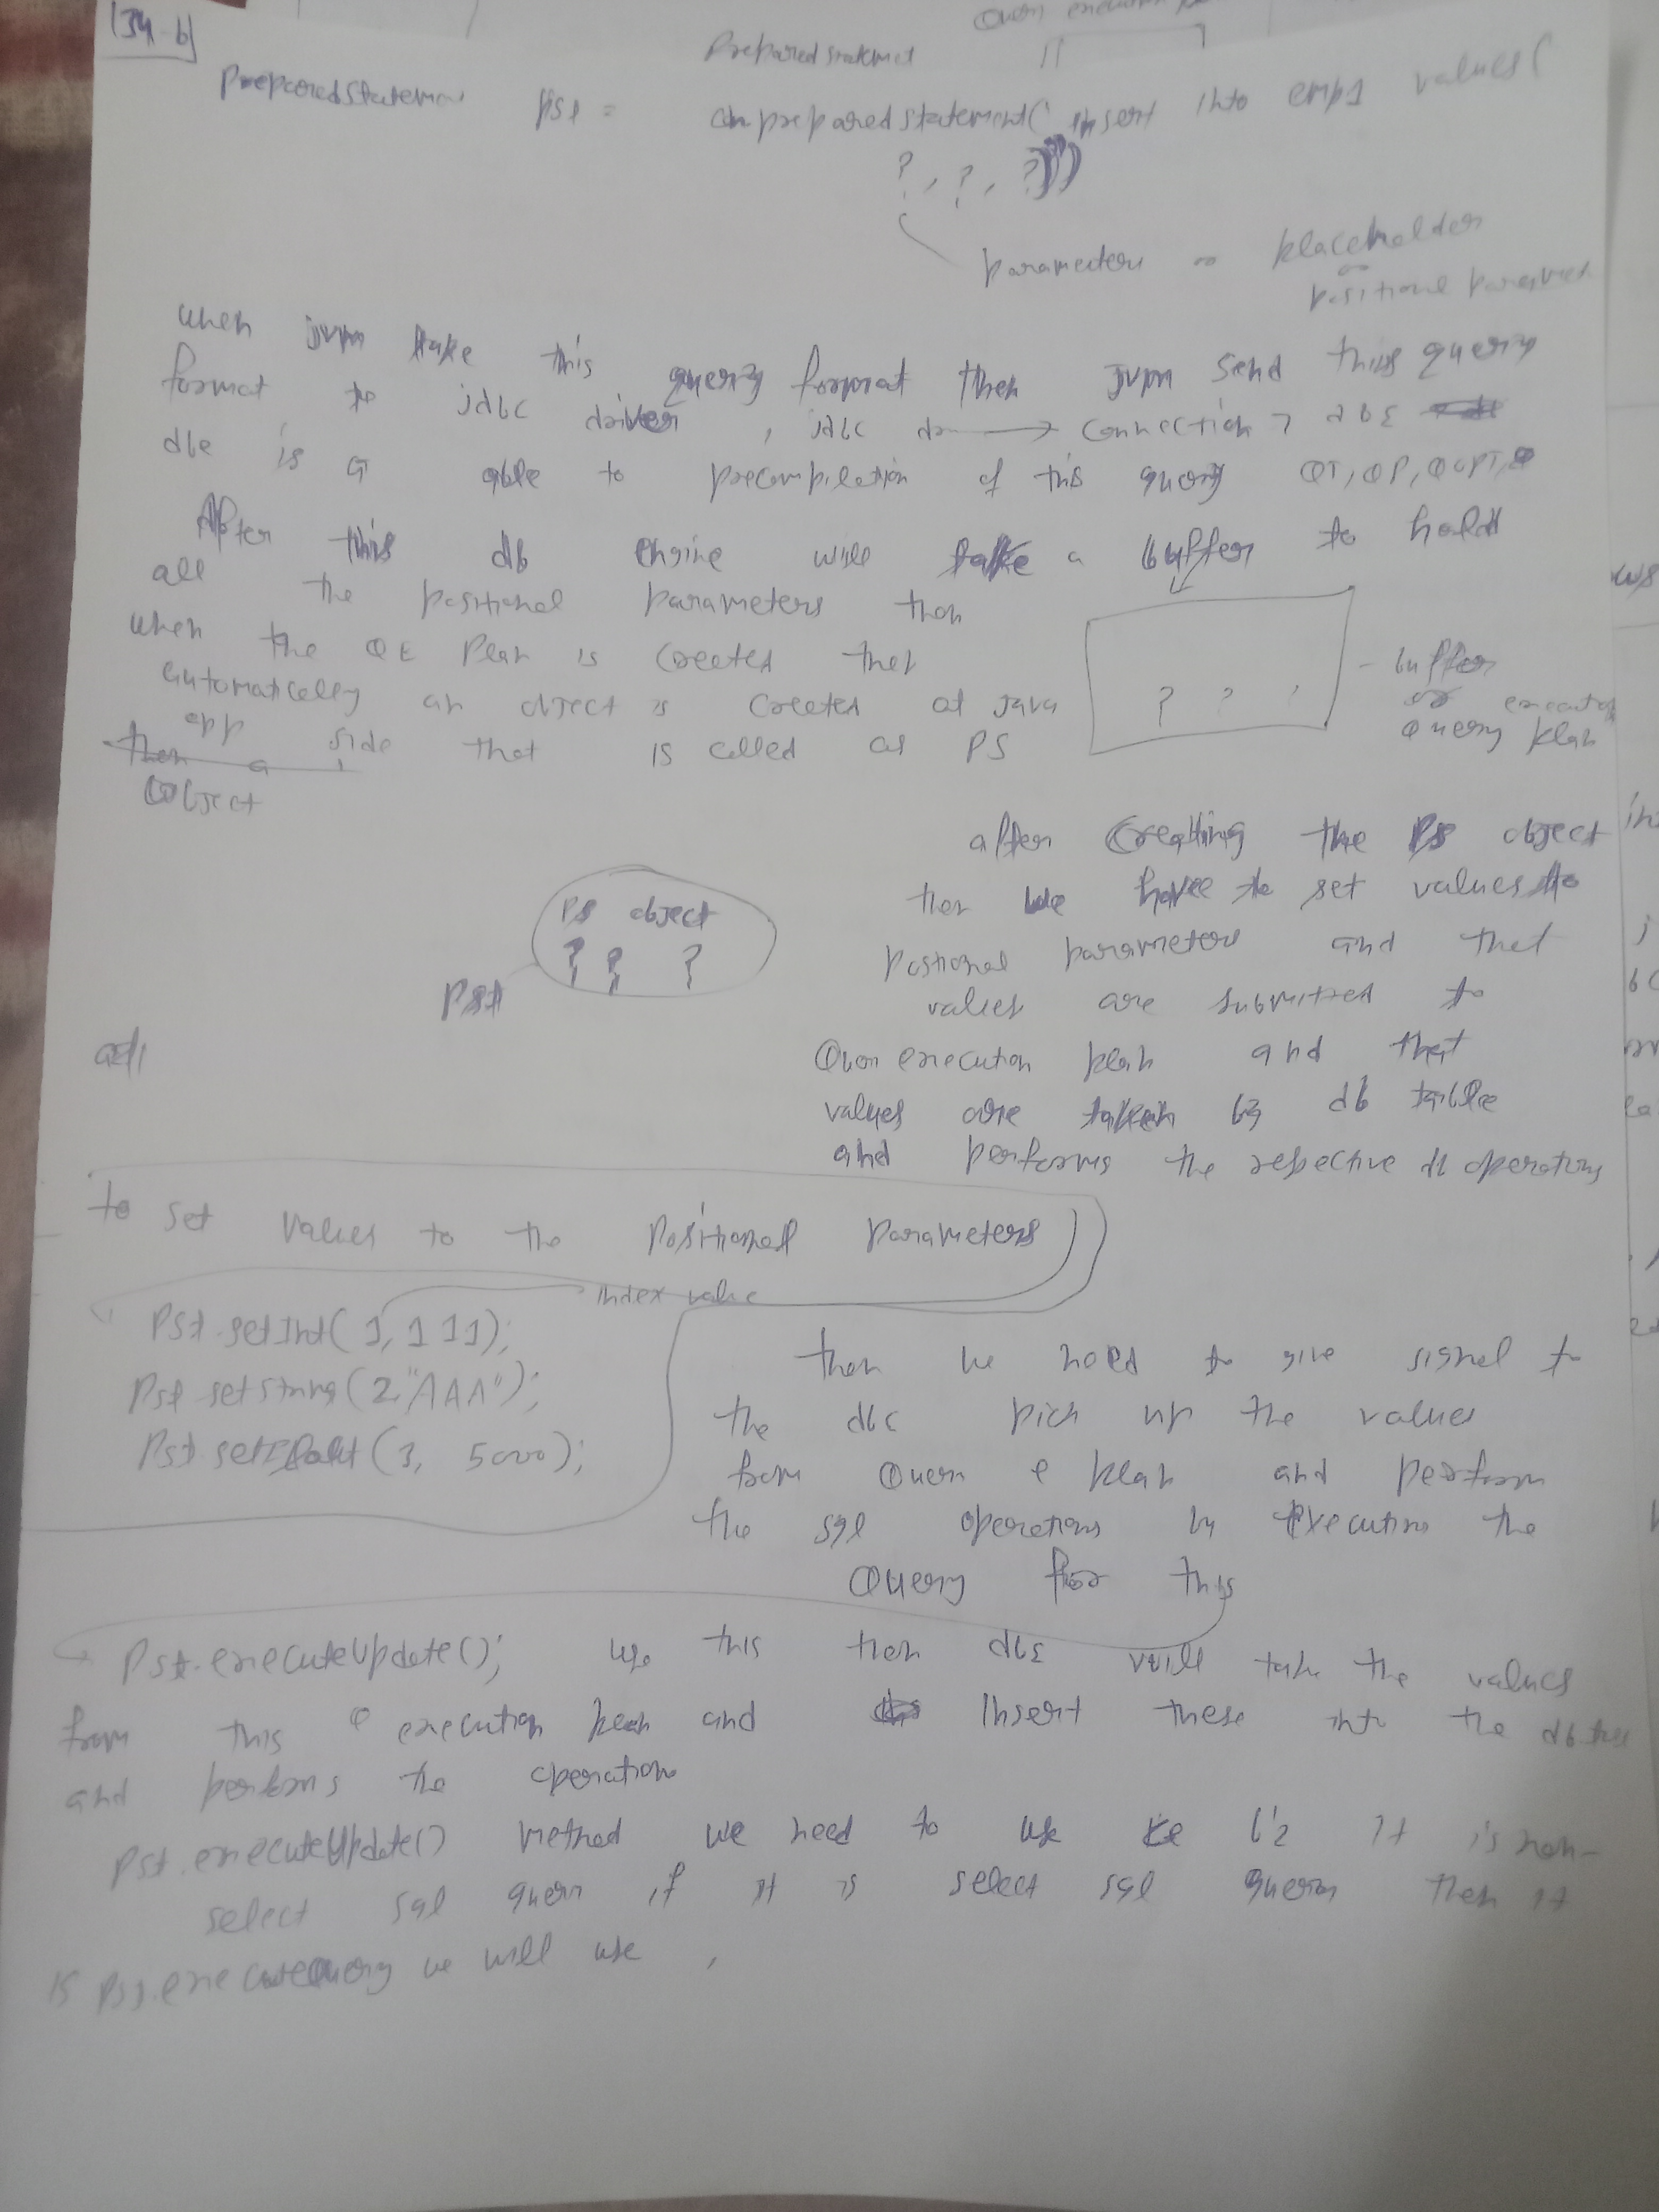 134-b
Query execution
PreparedStatement
PreparedStatement pst = con.preparedstatement("insert into emp1 values(
?, ?, ?"))
parameters or placeholder
or
positional parameter
when jvm take this query format then jvm send this query
format to jdbc driver, jdbc dr → connection → dbE
dbe is a able to precompilation of this query QT, QP, QOPT,
After this db engine will take a buffer to hold
all the positional parameters then
when the QE plan is created then
automatically an object is created at java
app side that is called as PS
object
? ? ?
- buffer
or execution
query plan
after creating the PS object
then we have to set values to
PS object
? ? ?
Pst
positional parameters and that
values are submitted to
Query execution plan and that
values are taken by db table
and performs the respective db operations
to set values to the Positional Parameters
index value
Pst.setInt(1, 111);
Pst.setString(2,"AAA");
Pst.setFloat(3, 5000);
then we need to give signal to
the dbe pick up the values
from Query e plan and perform
the sql operations by Executing the
Query for this
→ Pst.executeUpdate(); use this then dbE will take the values
from this Q execution plan and insert these into the db
and performs the operations
Pst.executeUpdate() method we need to use bcz it is non-
select sql query if it is select sql query then it
is pst.executeQuery we will use,